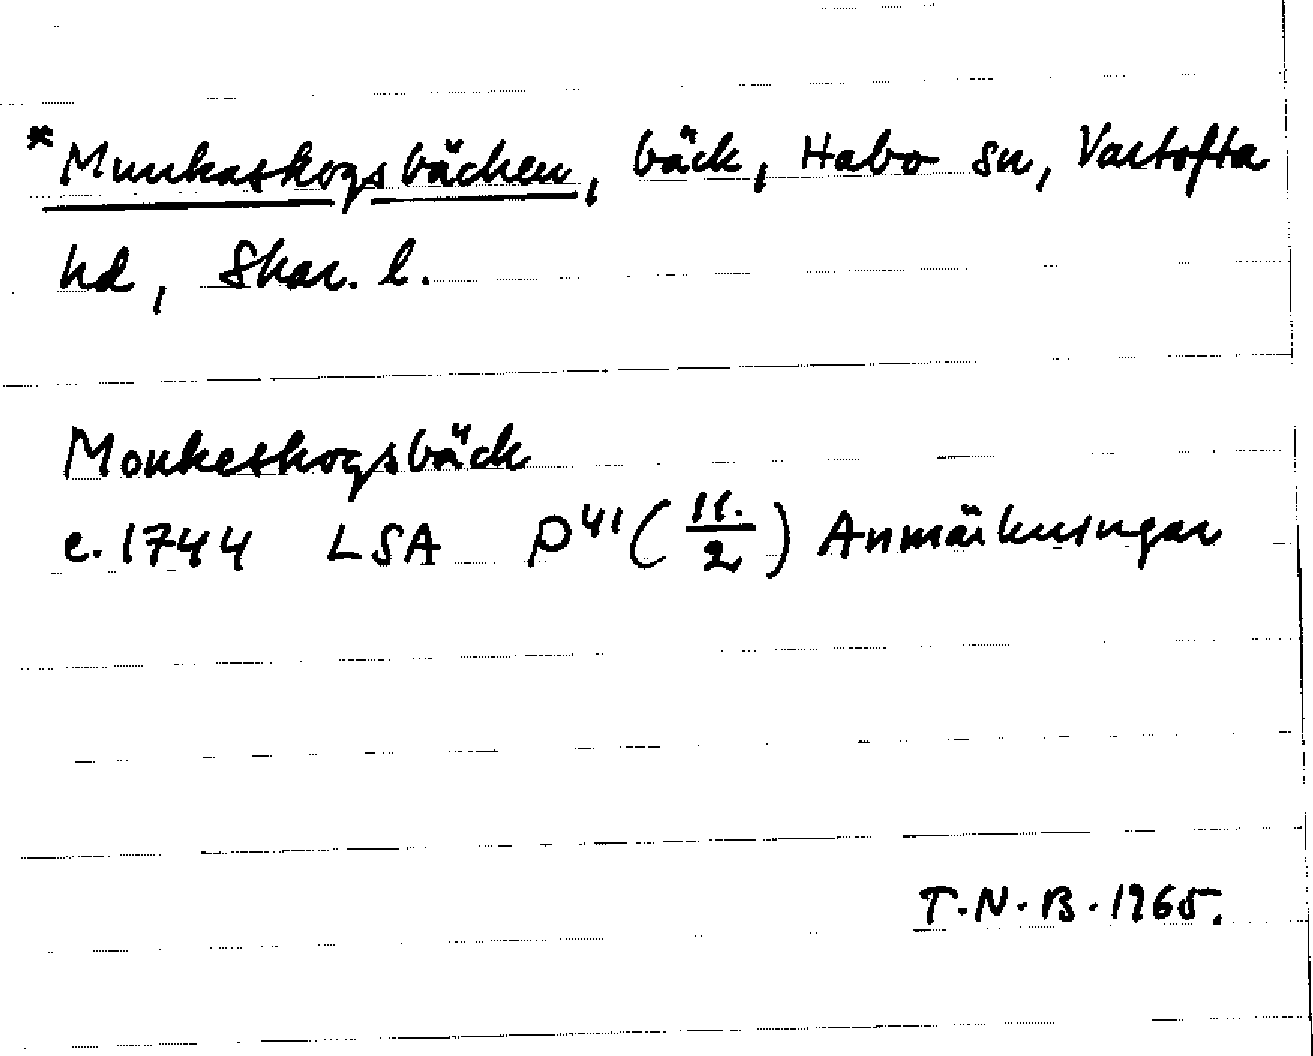 *Munkaskogsbäcken, bäck, Habo sn, Vartofta
hd, Skar. l.
Monkeskogsbäck
c. 1744 LSA P41 (11./2) Anmärkningar
T.N.B. 1965.